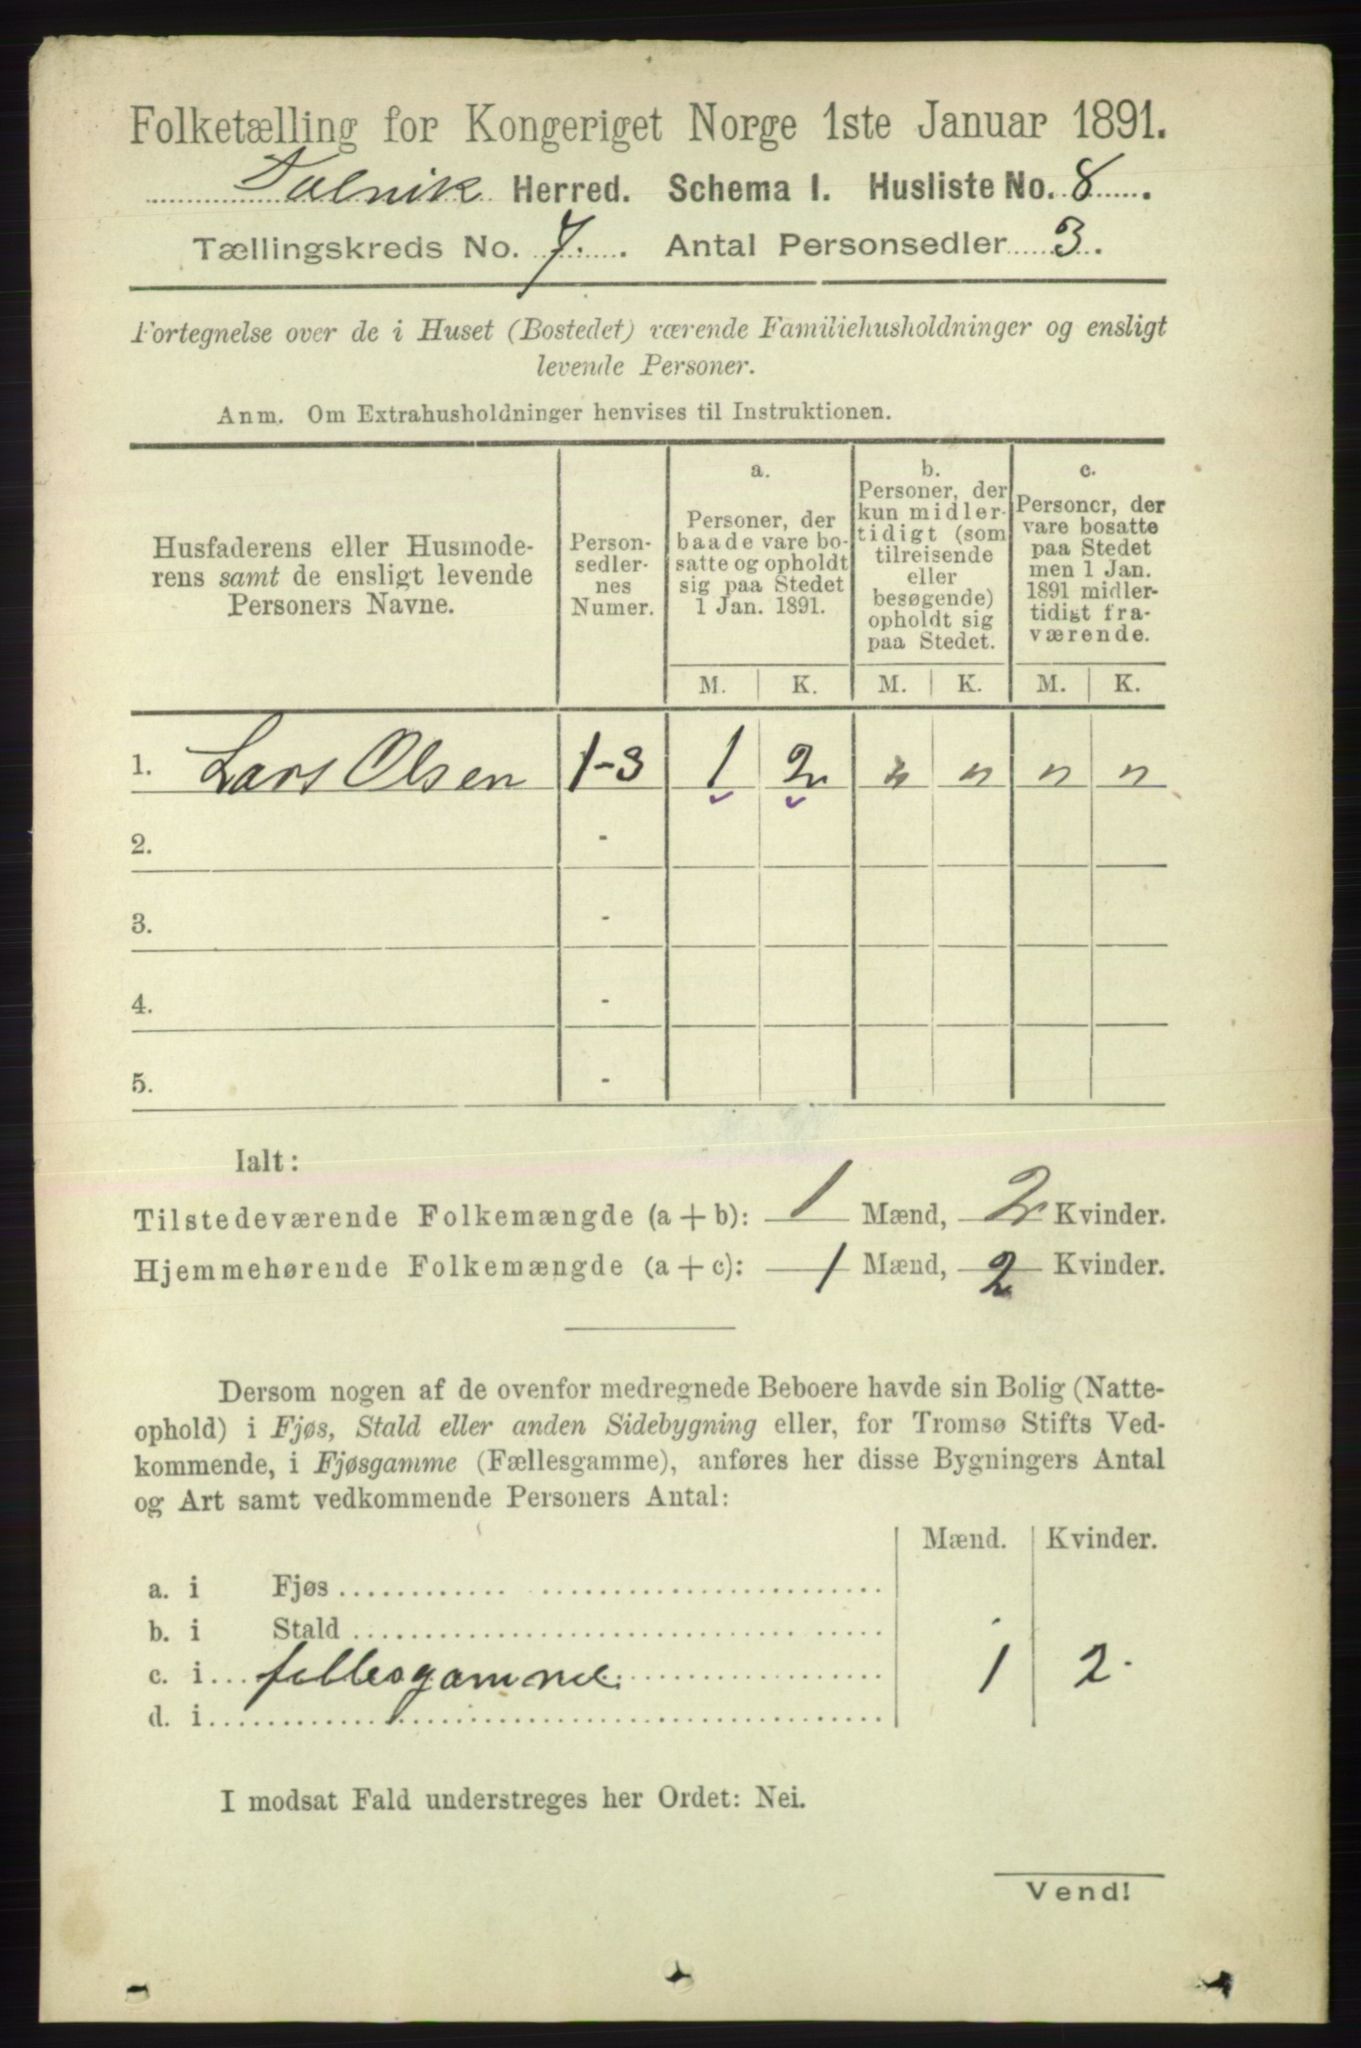 Folketælling for Kongeriget Norge 1ste Januar 1891.
Talvik Herred. Schema I. Husliste No. 8.
Tællingskreds No. 7. Antal Personsedler 3.
Fortegnelse over de i Huset (Bostedet) værende Familiehusholdninger og ensligt
levende Personer.
Anm. Om Extrahusholdninger henvises til Instruktionen.
Husfaderens eller Husmode-
rens samt de ensligt levende
Personers Navne.
Person-
sedler-
nes
Numer.
a.
Personer, der
baade vare bo-
satte og opholdt
sig paa Stedet
1 Jan. 1891.
b.
Personer, der
kun midler-
tidigt (som
tilreisende
eller
besøgende)
opholdt sig
paa Stedet.
c.
Personer, der
vare bosatte
paa Stedet
men 1 Jan.
1891 midler-
tidigt fra-
værende.
M. K. M. K. M. K.
1. Lars Olsen 1-3 1 2 " " " "
2. -
3. -
4. -
5. -
Ialt:
Tilstedeværende Folkemængde (a + b): 1 Mænd, 2 Kvinder.
Hjemmehørende Folkemængde (a + c): 1 Mænd, 2 Kvinder.
Dersom nogen af de ovenfor medregnede Beboere havde sin Bolig (Natte-
ophold) i Fjøs, Stald eller anden Sidebygning eller, for Tromsø Stifts Ved-
kommende, i Fjøsgamme (Fællesgamme), anføres her disse Bygningers Antal
og Art samt vedkommende Personers Antal:
Mænd. Kvinder.
a. i Fjøs
b. i Stald
c. i fellesgamme 1 2.
d. i
I modsat Fald understreges her Ordet: Nei.
Vend!